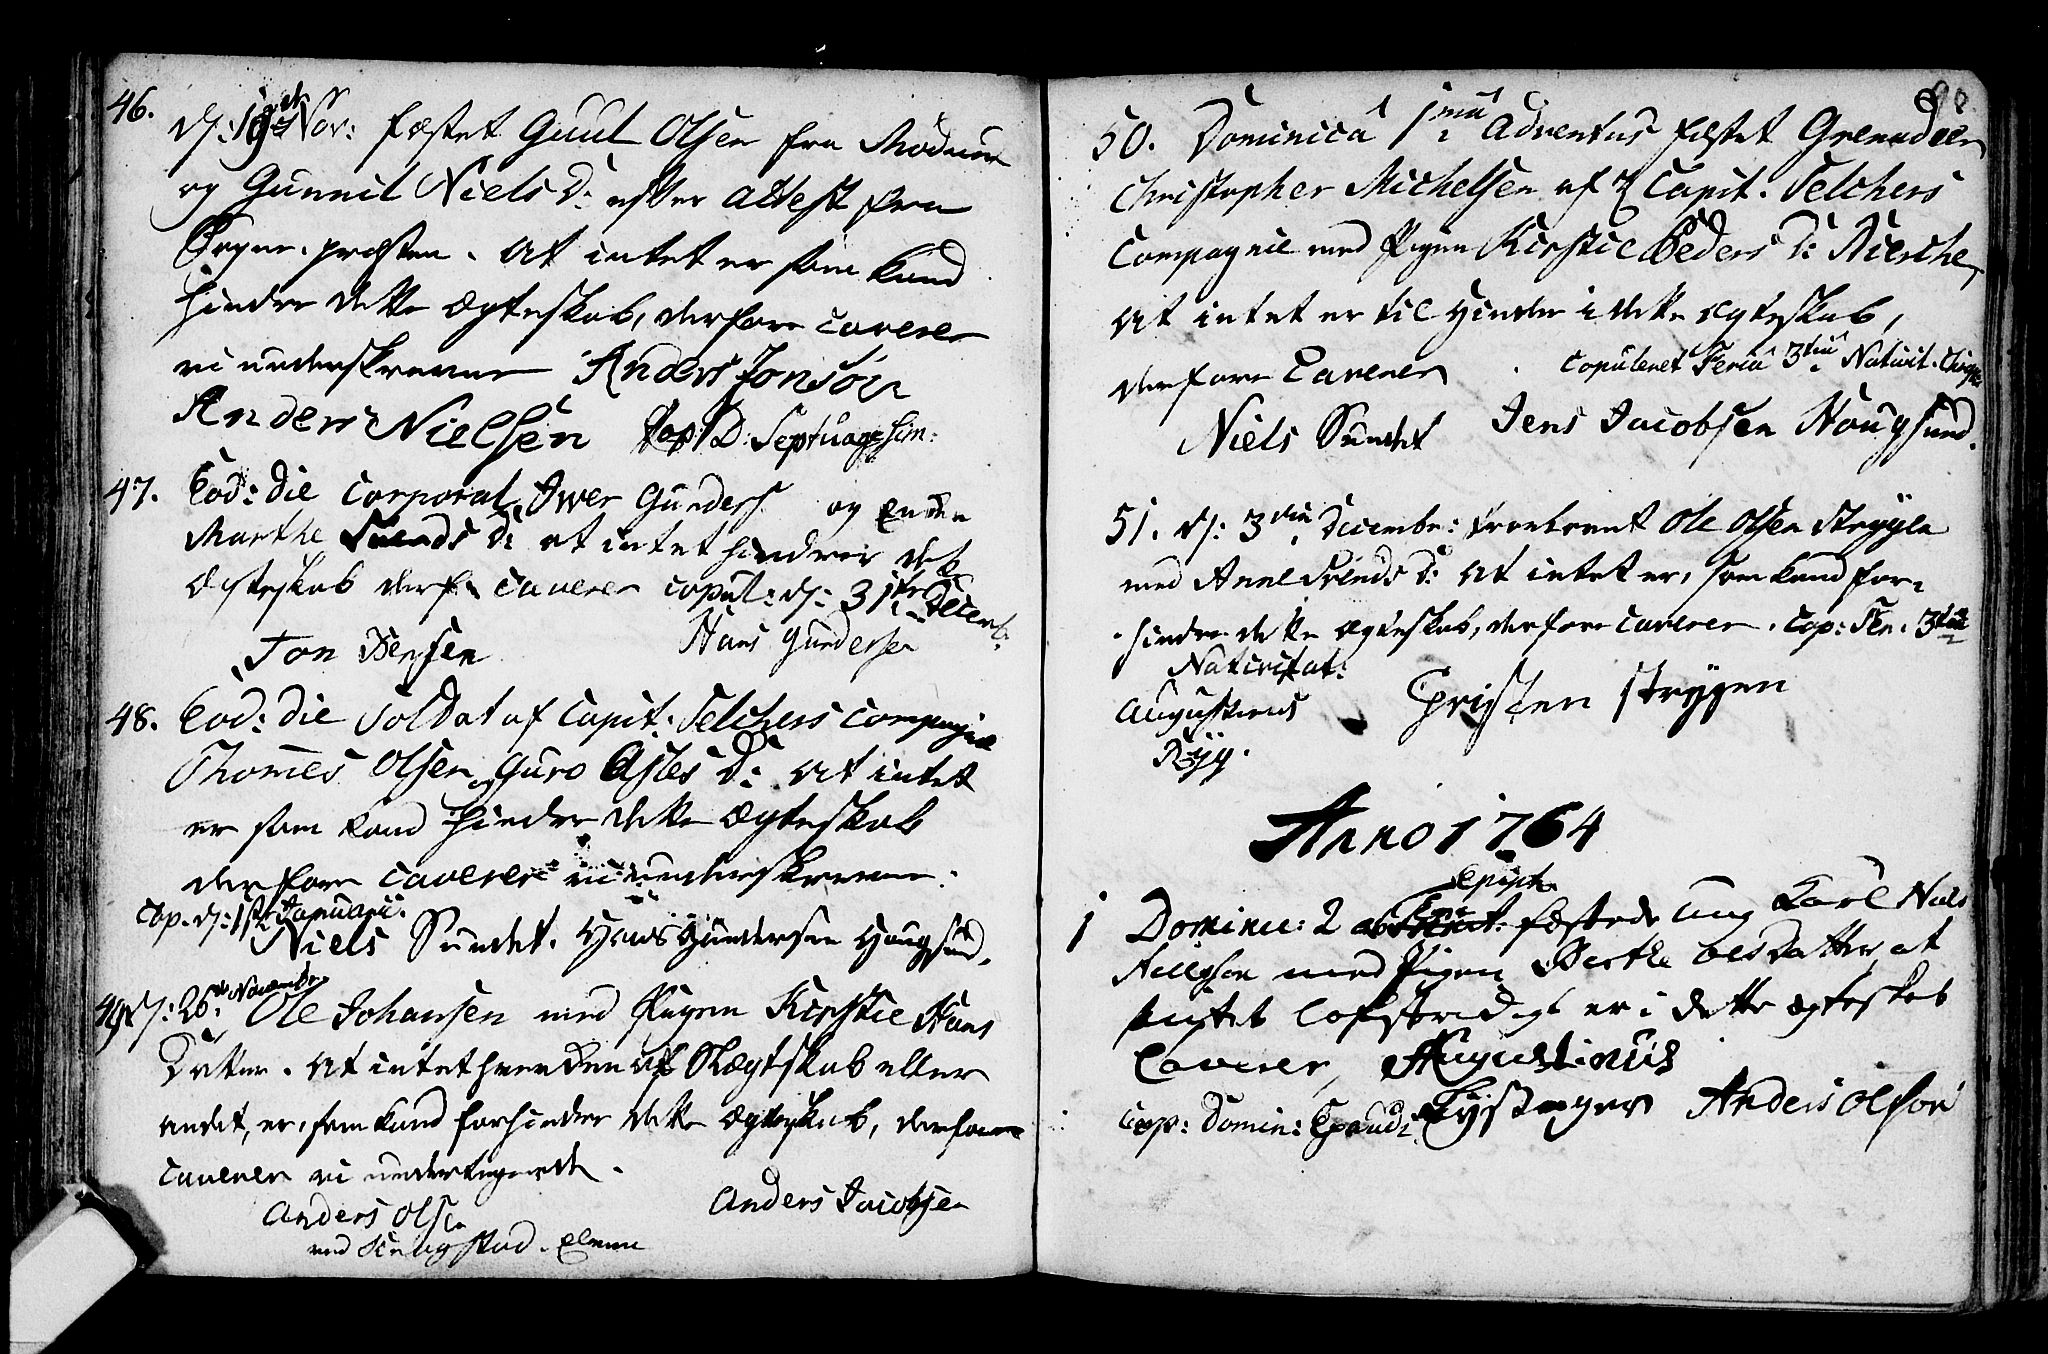 46.
d: 19de Nov: fæstet Guul Olsen fra Modum
og Gunnil Niels D: efter Attest fra
Sogne-præsten. At intet er som kand
hindre dette Ægteskab, derfore caverer
vi underskrevne Anders Jonsøn
Anders Nielsen Cop: D: Septuagesim:
47. Eod: die Corporal Iwer Gunders. og Enken
Marthe Svends D: at intet hindrer det
Ægteskab derf. caverer copul: d: 31te Decemb:
Jon Bensen Hans Gundersen
48. Eod: die Soldat af Capit: Selchers Compagnie
Thomes Olsen og Guro Asles D: At intet
er som kand hindre dette Ægteskab
derfore caverer vi underskrevne.
Cop. d: 1ste Januari.
Niels Sundet. Hans Gundersen Hougsund.
49. d: 26de Novembr. Ole Johansen med Pigen Kirstie Hans
Datter. At intet hverken af Slægtskab eller
andet, er, som kand forhindre dette Ægteskab, derfore
caverer vi undertegnede.
Anders Olsen Anders Jacobsen
50. Dominica 1ma Adventus fæstet Grenadeer
Christopher Michelsen af Capit. Selchers
Compagnie med Pigen Kirstie Peders D:
At intet er til Hinder i dette Ægteskab,
derfore Caverer. Copuleret Feria 3tia Nativit. Christi
Niels Sundet Jens Jacobsen Hougsund.
51. d: 3die Decembr: trovlovet Ole Olsen Strygen
med Anne Svends D: At intet er, som kand for-
hindre dette Ægteskab, derfore caverer. Cop: Fer. 3tia
Nativitat:
Augustinus Christen Strygen
Ryg.
Anno 1764
Epiph
1 Dominic: 2 fæstede Ung Karl Niels
Hellgsen med Pigen Berthe Olsdatter, at
intet lofstridigt er i dette ægteskab
Caverer, Augustinus
Cop: Domin: Exaudi Anders Olsøn